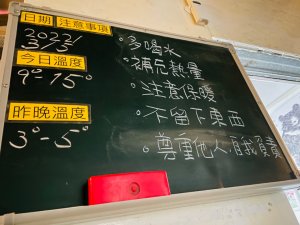 日期 注意事項
2022/
3/3
今日溫度
9°-15°
昨晚溫度
3°-5°
·多喝水
·補充熱量
·注意保暖
·不留下東西
·尊重他人 自我負責